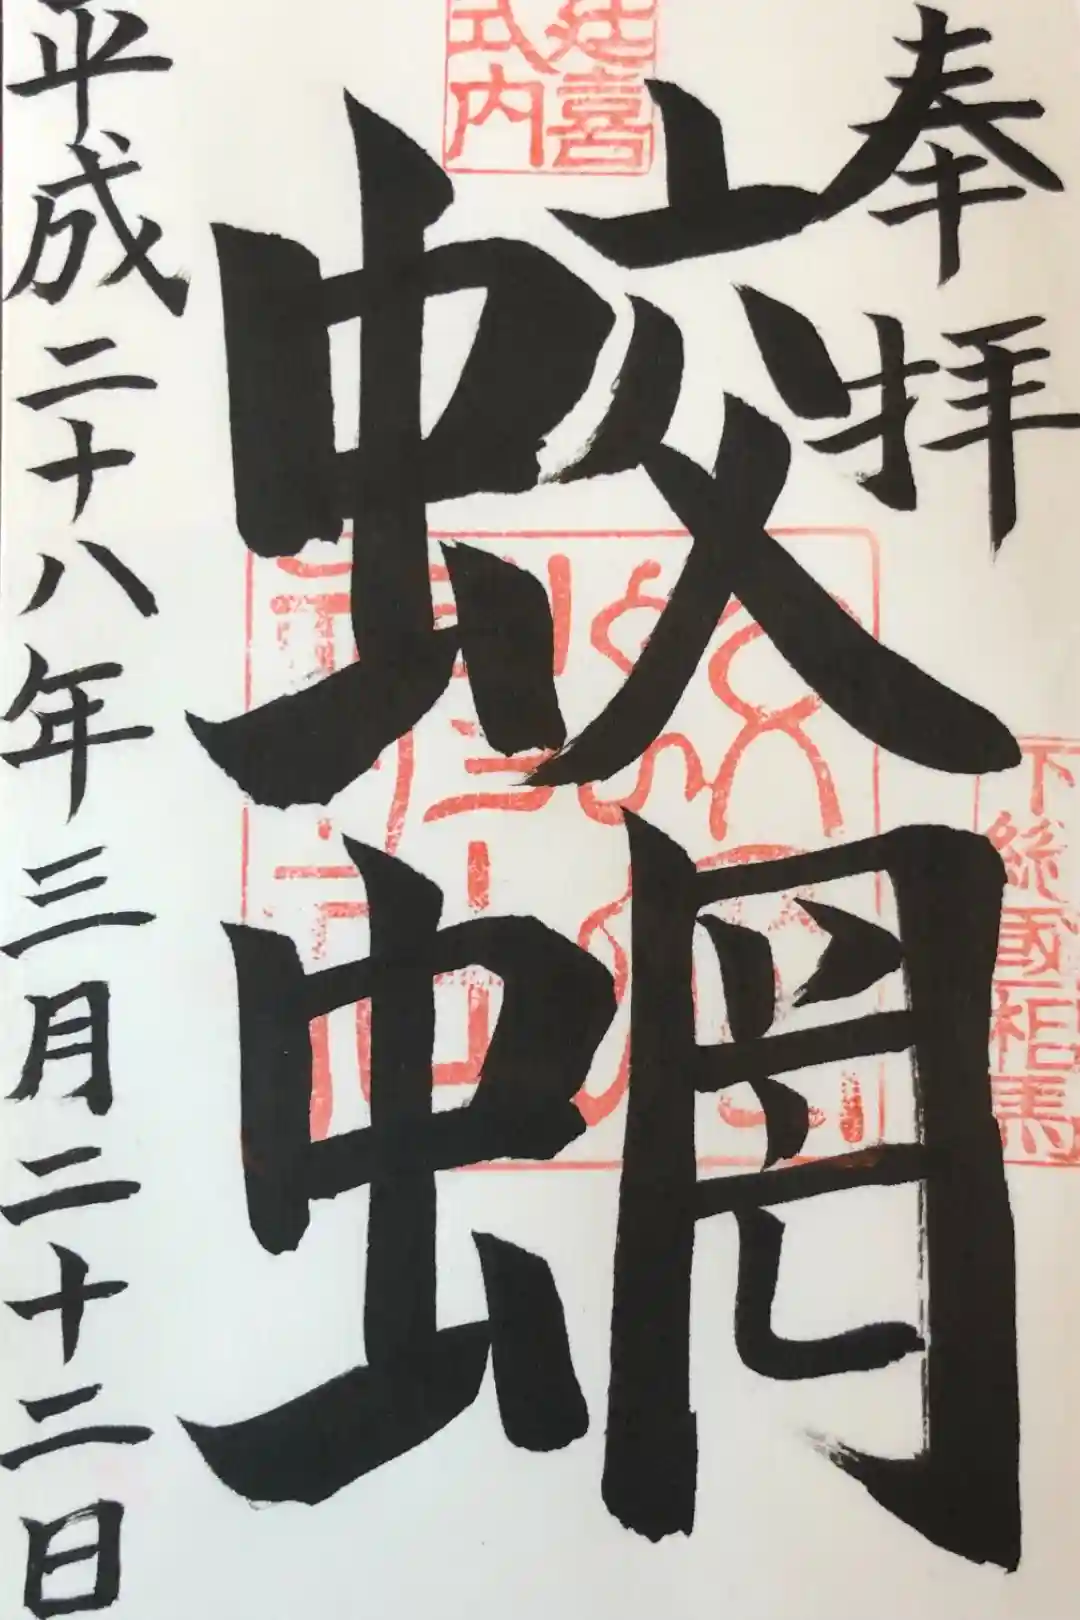 奉拝
延喜
式内
下総國相馬
蛟蝄
平成二十八年三月二十二日